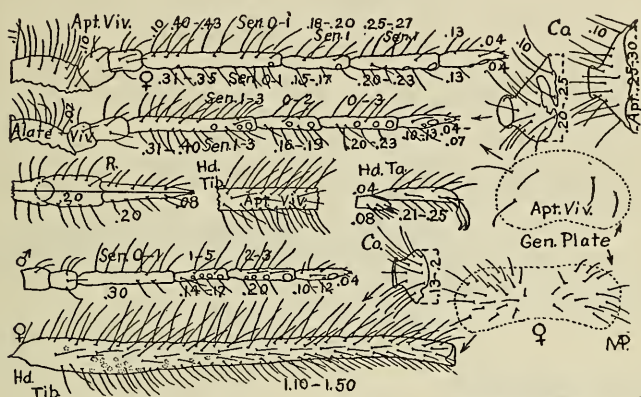 Apt. Viv. .10 .10 .40-.43 Sen. 0-1 .18-.20 Sen. 1 .25-.27 Sen. 1 .13 .04
♀ .31-.35 Sen. 0-1 .15-.17 .20-.23 .13 .04
Ca. .10 .20-.25 .10 Apt. .25-.30
Alate Viv. .02 Sen. 1-3 0-2 0-3
.31-.40 Sen. 1-3 .16-.19 .20-.23 .10-.13 .04-.07
R. .20 .20 .08
Hd. Tib. Apt. Viv.
Hd. Ta. .04 .08 .21-.25
Apt. Viv.
Gen. Plate
♂ Sen. 0-1 1-5 2-3
.30 .14-.17 .20 .10-.12 .04
Ca.
♀ ♀ MP.
Hd. Tib. 1.10-1.50